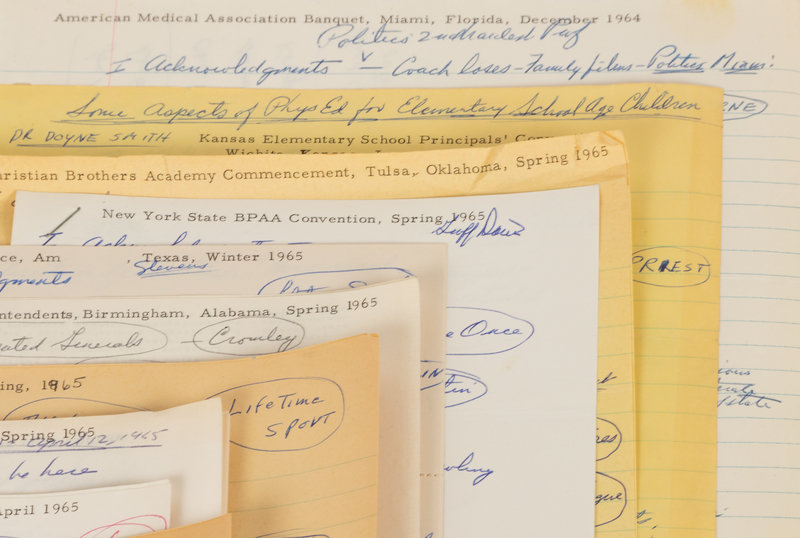 American Medical Association Banquet, Miami, Florida, December 1964
Politics
I Acknowledgments — Coach loses - Family films - Politics Miami:
Some Aspects of Phys Ed for Elementary School Age Children
DR DOYNE SMITH Kansas Elementary School Principals'
Wichita,
hristian Brothers Academy Commencement, Tulsa, Oklahoma, Spring 1965
New York State BPAA Convention, Spring 1965
I
ce, Am , Texas, Winter 1965
gments Stevens
PRIEST
ntendents, Birmingham, Alabama, Spring 1965
Generals - Crowley
e Once
ing, 1965
LIFETIME
SPORT
Spring 1965
April 12, 1965
be here
April 1965